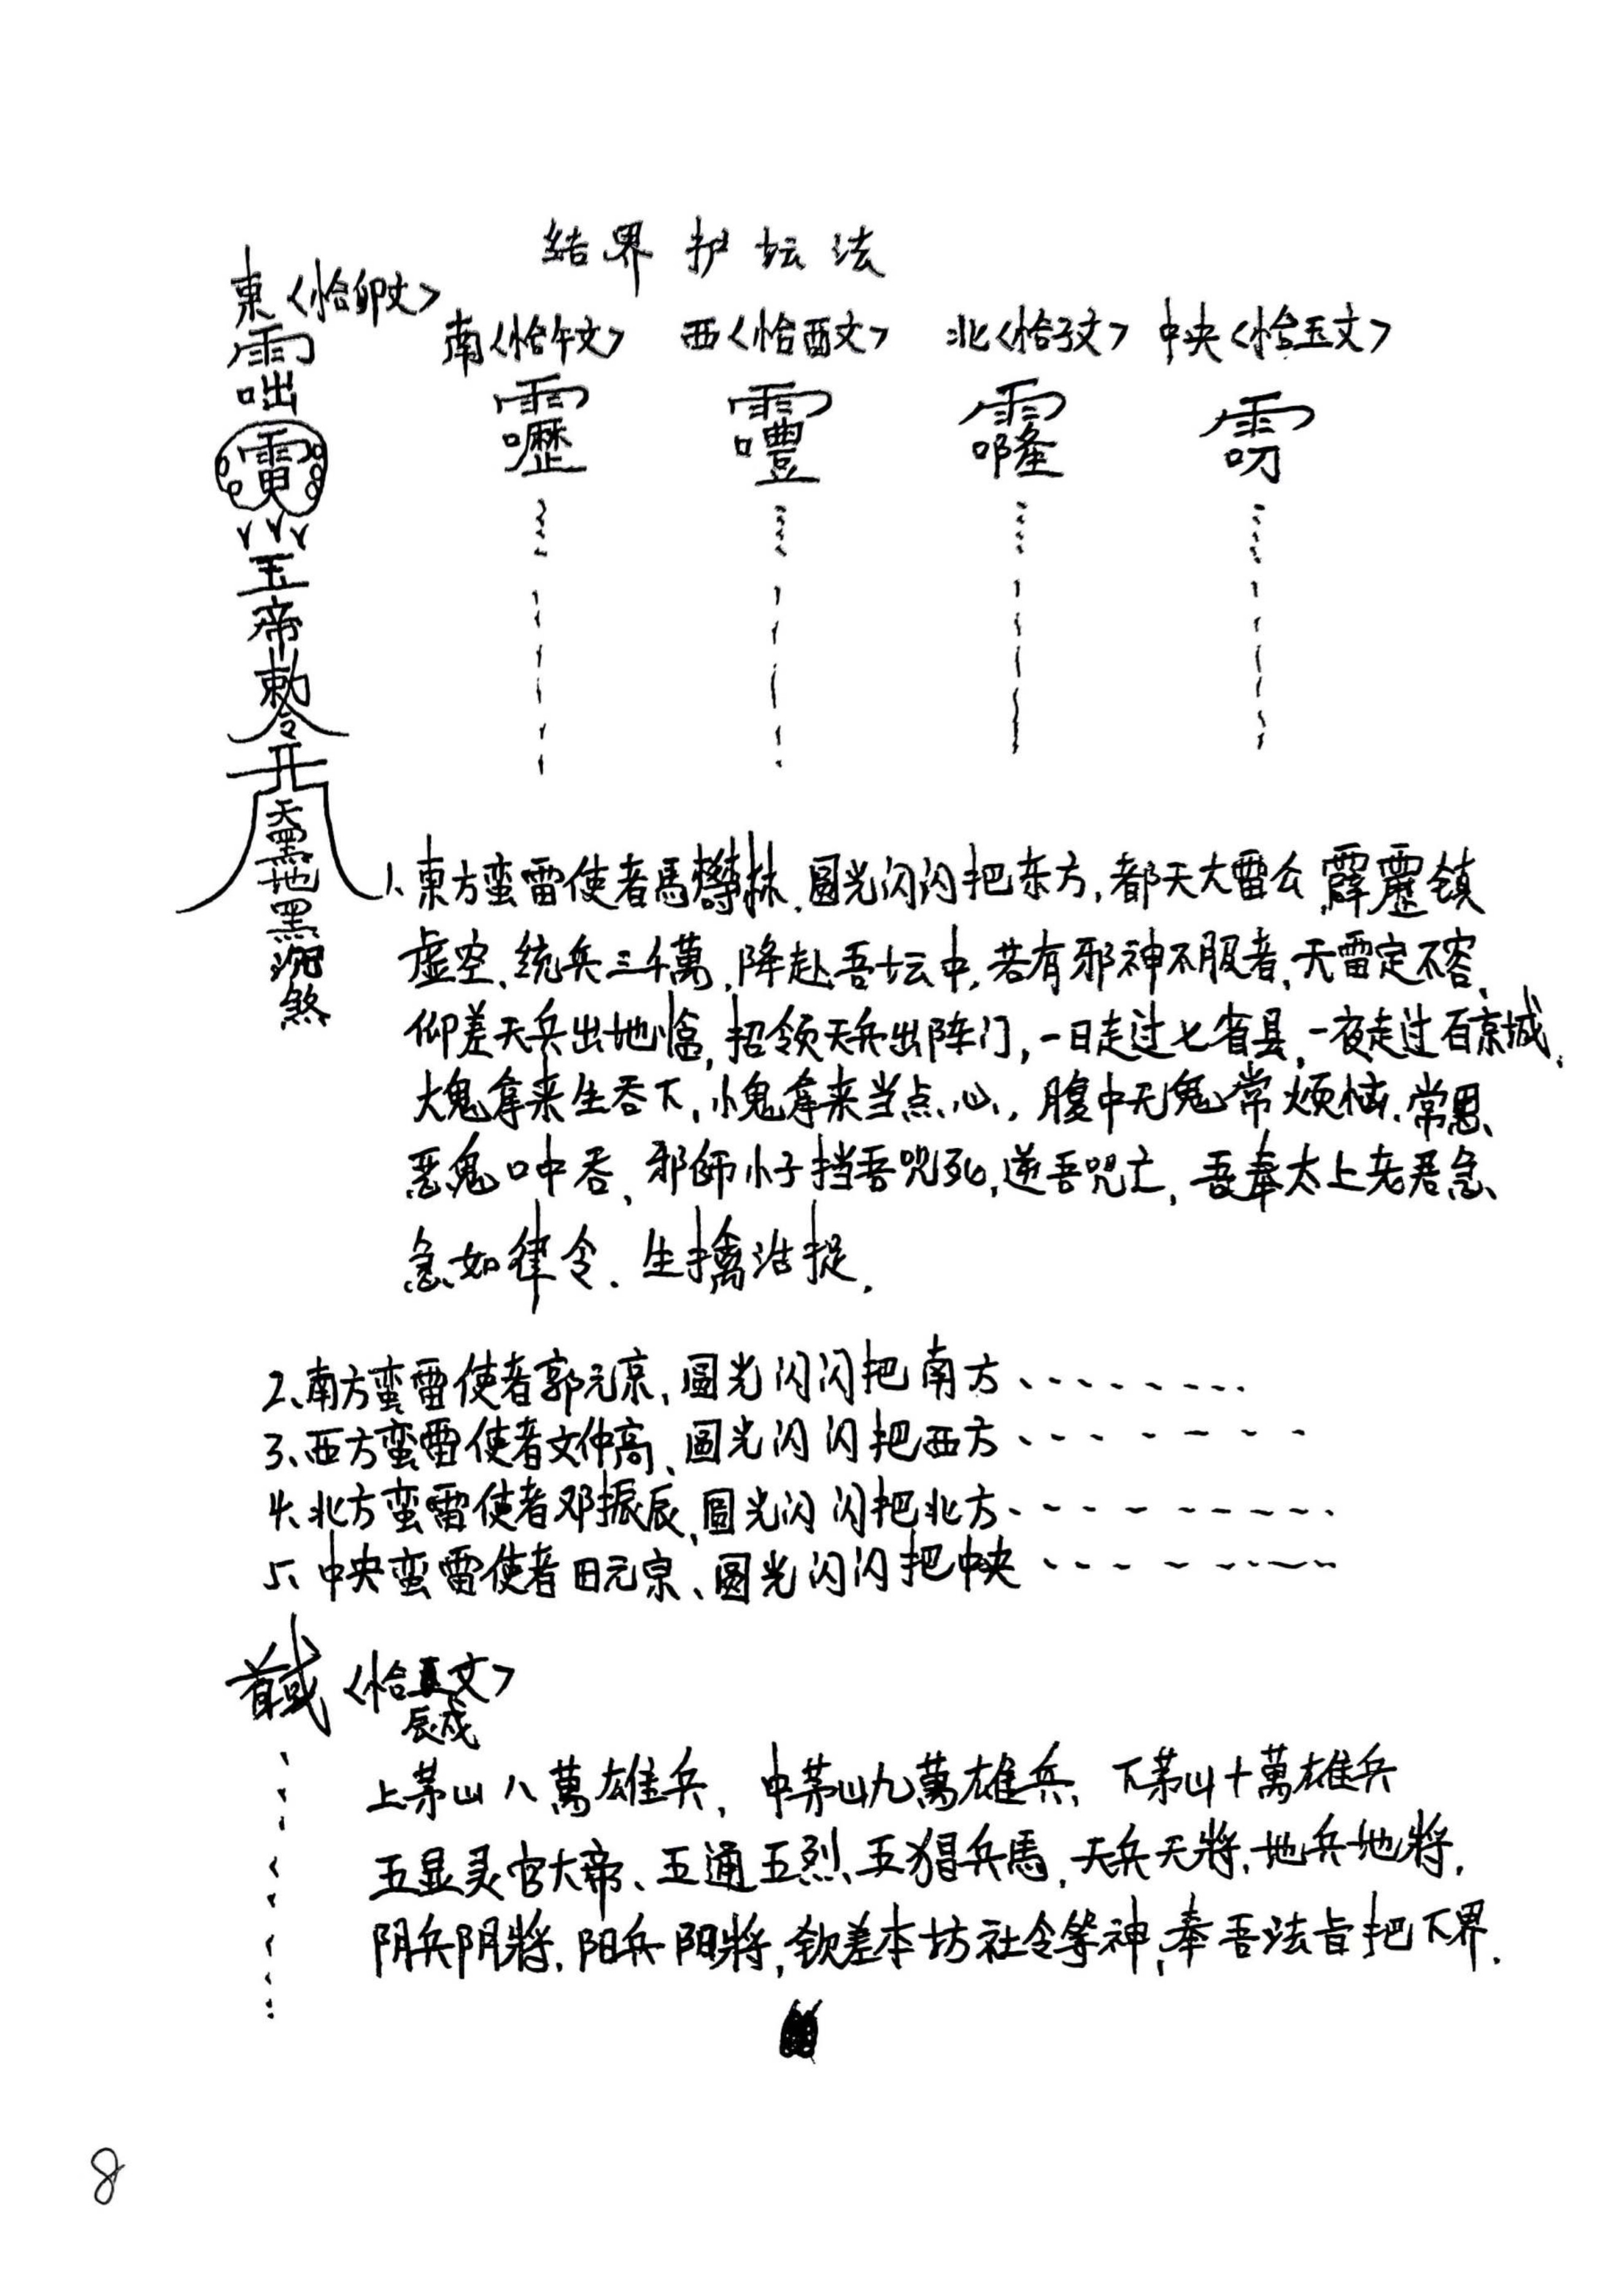 结界护坛法
東〈恰卯文〉
南〈恰午文〉 西〈恰酉文〉 北〈恰子文〉 中央〈恰玉文〉
玉帝勅令
天黑地黑
煞
1、東方蛮雷使者馬 , 圆光闪闪把东方, 都天大雷公 霹靂镇
虚空、统兵三千萬, 降赴吾坛中, 若有邪神不服者, 天雷定不容、
仰差天兵出地 , 招领天兵出阵门, 一日走过七省县, 一夜走过百京城、
大鬼拿来生吞下, 小鬼拿来当点心, 腹中无鬼常烦恼、常思
恶鬼口中吞、邪師小子挡吾咒死, 逆吾咒亡, 吾奉太上老君急
急如律令. 生擒活捉.
2、南方蛮雷使者郭元京、圆光闪闪把南方、- - - - - - -
3、西方蛮雷使者文仲高、圆光闪闪把西方、- - - - - -
4、北方蛮雷使者邓振辰、圆光闪闪把北方、- - - - - - - -
5、中央蛮雷使者田元宗、圆光闪闪把中央、- - - - - -
〈恰 文〉
辰戌
上茅山八萬雄兵, 中茅山九萬雄兵、下茅山十萬雄兵
五显灵官大帝、五通五烈、五猖兵馬, 天兵天將, 地兵地將,
阴兵阴將, 阳兵阳將, 钦差本坊社令等神, 奉吾法旨把下界.
8